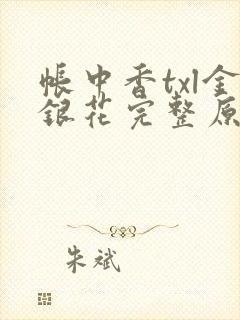 帐中香txl金
银花完整原
朱斌